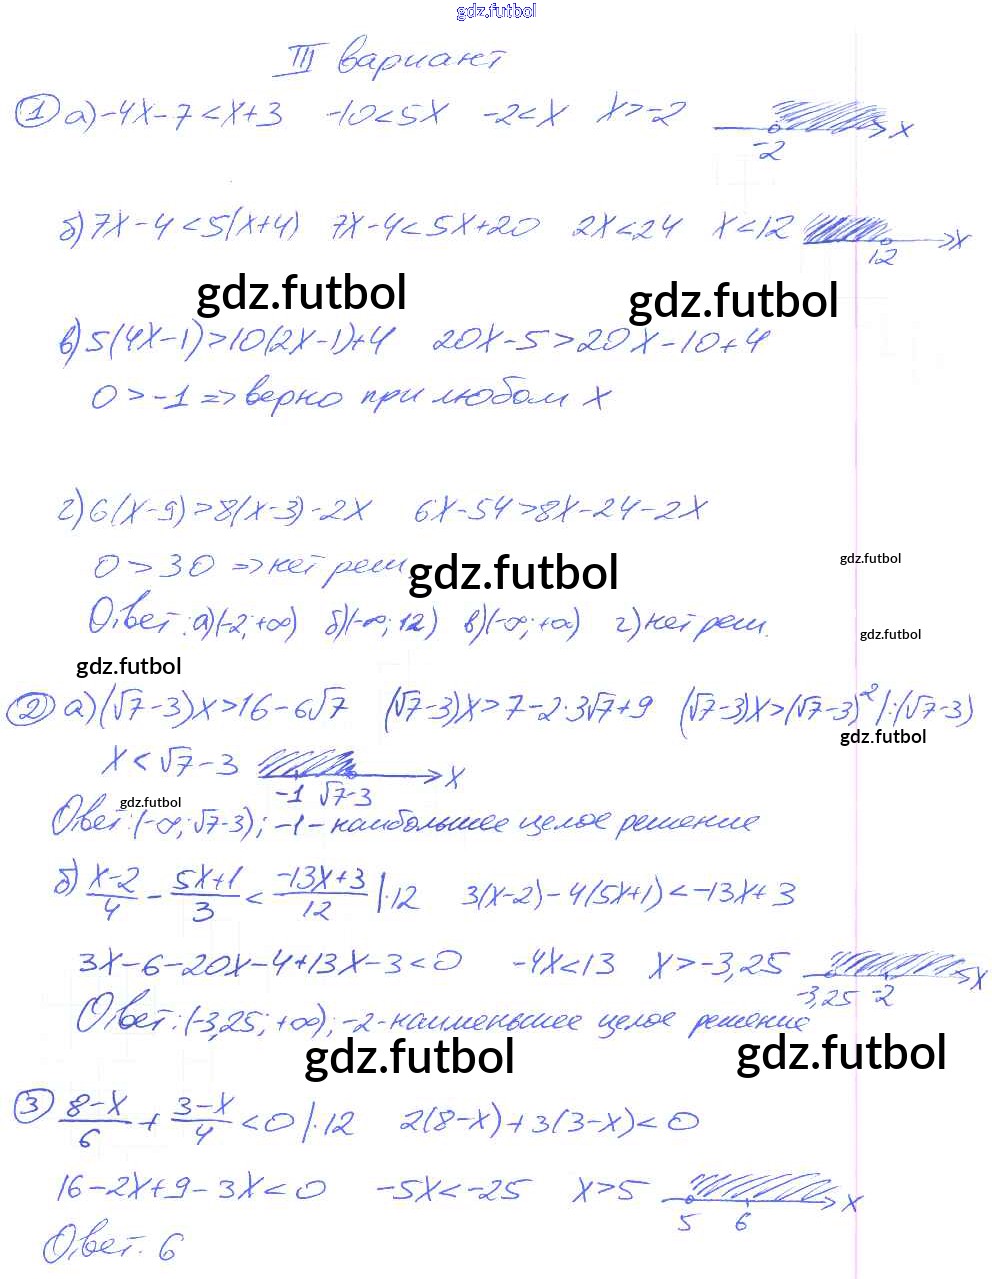 gdz.futbol
III вариант
① а) -4x-7<x+3   -10<5x   -2<x   x>-2   x
-2
б) 7x-4<5(x+4)   7x-4<5x+20   2x<24   x<12   x
12
gdz.futbol   gdz.futbol
в) 5(4x-1)>10(2x-1)+4   20x-5>20x-10+4
0>-1 => верно при любом x
г) 6(x-9)>8(x-3)-2x   6x-54>8x-24-2x
0>30 => нет реш.   gdz.futbol   gdz.futbol
Ответ: а)(-2;+∞)   б)(-∞;12)   в)(-∞;+∞)   г) нет реш.   gdz.futbol
gdz.futbol
② а) (√7-3)x>16-6√7   (√7-3)x>7-2·3√7+9   (√7-3)x>(√7-3)² |:(√7-3)
gdz.futbol
x<√7-3   x
-1   √7-3
gdz.futbol
Ответ: (-∞;√7-3); -1 - наибольшее целое решение
б) (x-2)/4 - (5x+1)/3 < (-13x+3)/12 |·12   3(x-2)-4(5x+1)<-13x+3
3x-6-20x-4+13x-3<0   -4x<13   x>-3,25   x
-3,25   -2
Ответ: (-3,25;+∞); -2 - наименьшее целое решение
gdz.futbol   gdz.futbol
③ (8-x)/6 + (3-x)/4 <0 |·12   2(8-x)+3(3-x)<0
16-2x+9-3x<0   -5x<-25   x>5   x
5   6
Ответ. 6